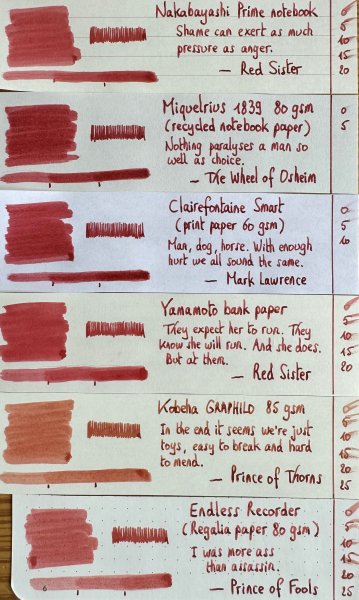 Nakabayashi Prime notebook
Shame can exert as much
pressure as anger.
— Red Sister
0
5
10
15
20
Miquelrius 1839 80 gsm
(recycled notebook paper)
Nothing paralyses a man so
well as choice.
— The Wheel of Osheim
0
5
Clairefontaine Smart
(print paper 60 gsm)
Man, dog, horse. With enough
hurt we all sound the same.
— Mark Lawrence
0
5
10
Yamamoto bank paper
They expect her to run. They
know she will run. And she does.
But at them.
— Red Sister
0
5
10
15
20
Kobeha GRAPHILO 85 gsm
In the end it seems we're just
toys, easy to break and hard
to mend.
— Prince of Thorns
0
5
10
15
20
25
Endless Recorder
(Regalia paper 80 gsm)
I was more ass
than assassin.
— Prince of Fools
0
5
10
15
20
25
6